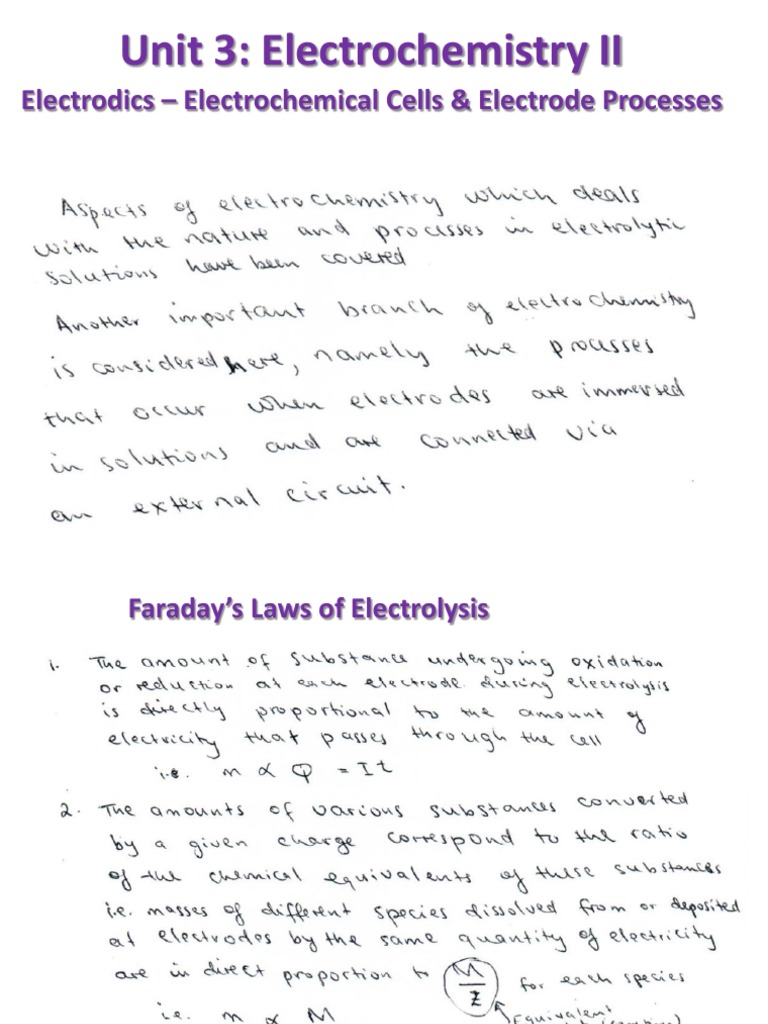 Unit 3: Electrochemistry II
Electrodics – Electrochemical Cells & Electrode Processes
Aspects of electrochemistry which deals
with the nature and processes in electrolytic
solutions have been covered
Another important branch of electrochemistry
is considered here, namely the processes
that occur when electrodes are immersed
in solutions and are connected via
an external circuit.
Faraday's Laws of Electrolysis
1. The amount of substance undergoing oxidation
or reduction at each electrode during electrolysis
is directly proportional to the amount of
electricity that passes through the cell
i.e. m ∝ Q = It
2. The amounts of various substances converted
by a given charge correspond to the ratio
of the chemical equivalents of these substances
i.e. masses of different species dissolved from or deposited
at electrodes by the same quantity of electricity
are in direct proportion to M/z for each species
i.e. m ∝ M
Equivalent